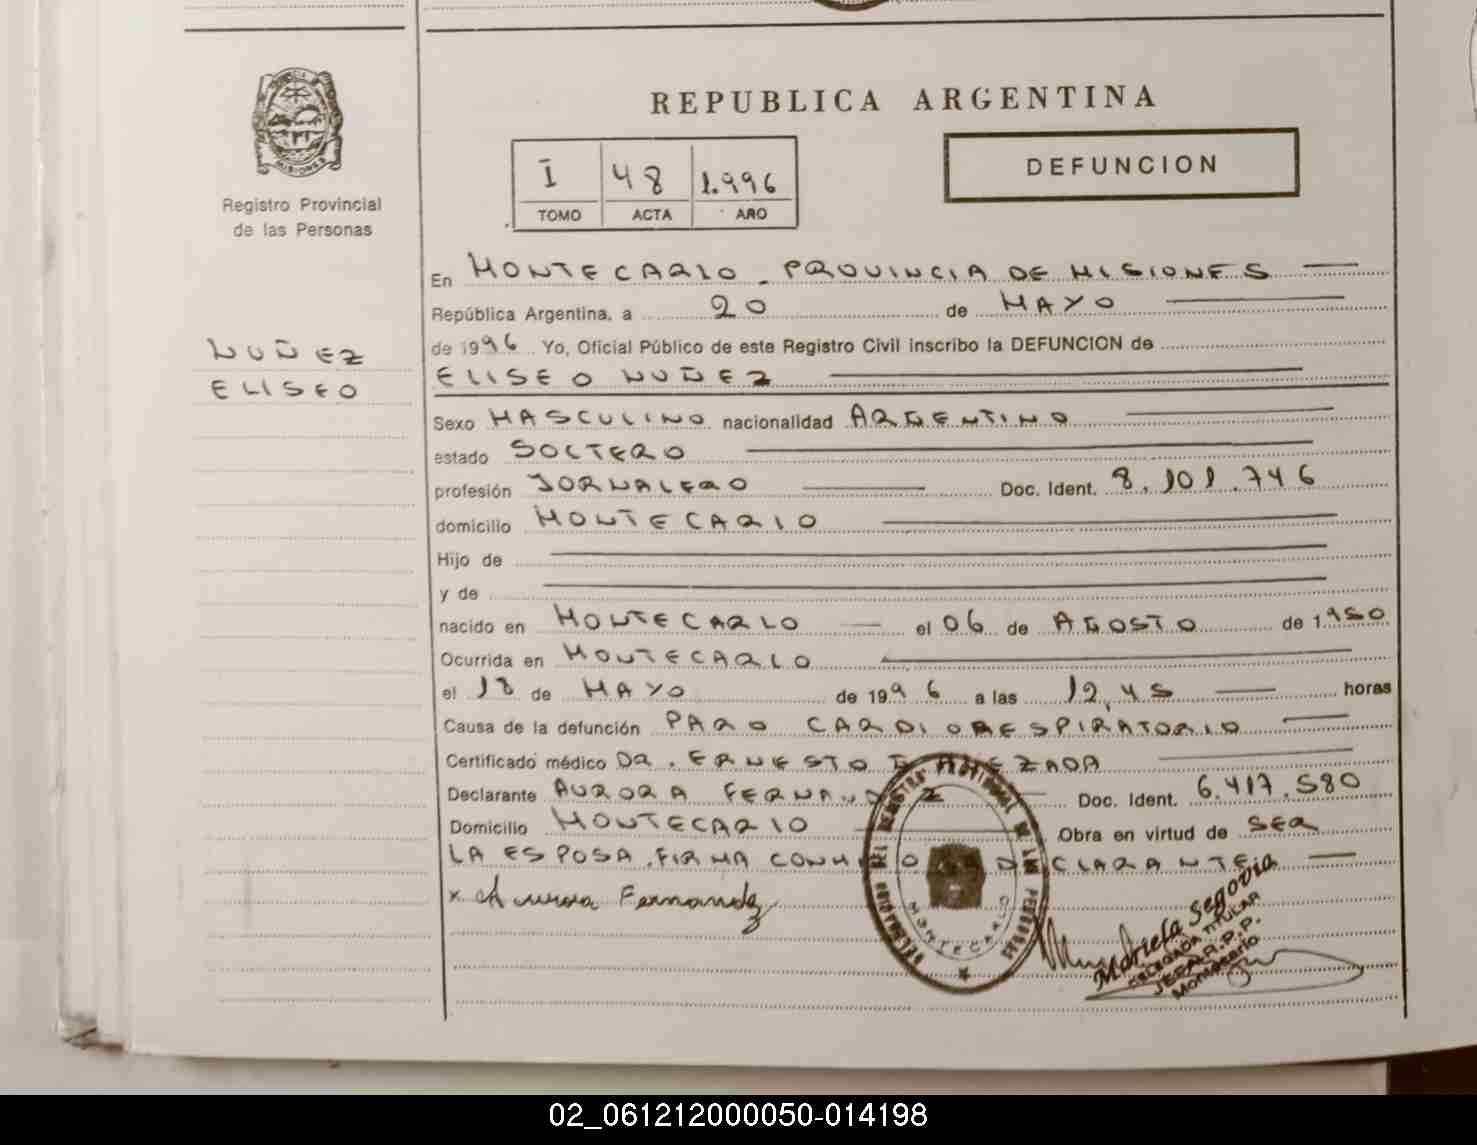 REPUBLICA ARGENTINA
DEFUNCION
I 48 1.996
TOMO ACTA AÑO
MISIONES
Registro Provincial
de las Personas
NUÑEZ
ELISEO
En MONTECARLO - PROVINCIA DE MISIONES
República Argentina, a 20 de MAYO
de 1996 Yo, Oficial Público de este Registro Civil inscribo la DEFUNCION de
ELISEO NUÑEZ
Sexo MASCULINO nacionalidad ARGENTINO
estado SOLTERO
profesión JORNALERO Doc. Ident. 8.101.746
domicilio MONTECARLO
Hijo de
y de
nacido en MONTECARLO el 06 de AGOSTO de 1950
Ocurrida en MONTECARLO
el 18 de MAYO de 1996 a las 12,45 horas
Causa de la defunción PARO CARDIORESPIRATORIO
Certificado médico DR. ERNESTO
Declarante AURORA FERNANDEZ Doc. Ident. 6.417.580
Domicilio MONTECARLO Obra en virtud de SER
LA ESPOSA. FIRMA CONMIGO LA DECLARANTE
x Aurora Fernandez
DEL REGISTRO PROVINCIAL DE LAS PERSONAS
MONTECARLO
Mariela Segovia
DELEGADA TITULAR
Montecarlo
02_061212000050-014198